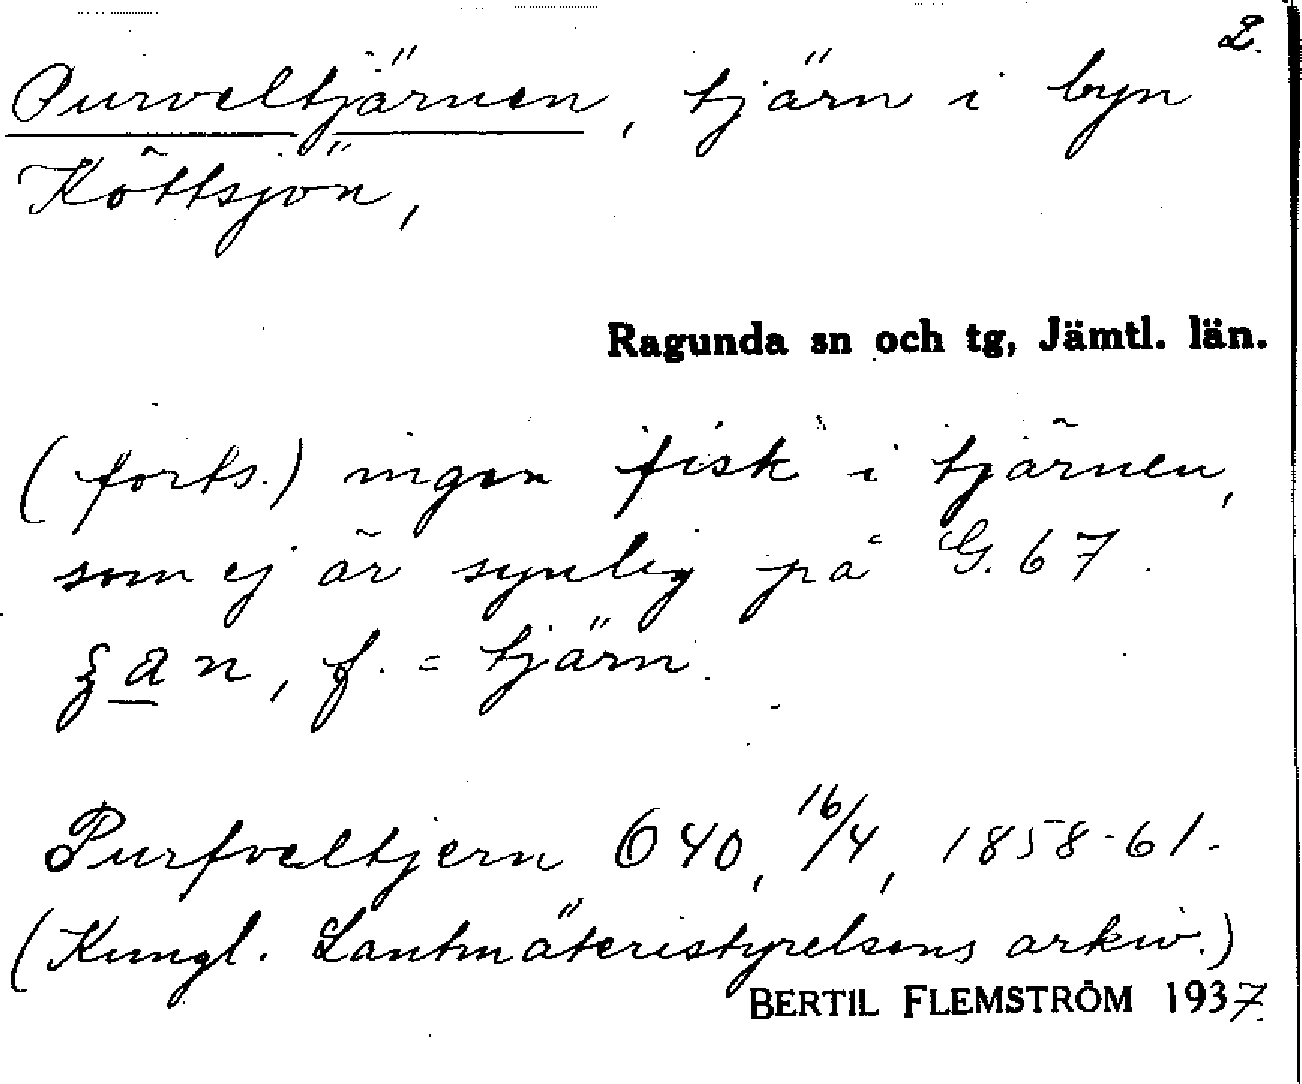 2.
Purveltjärnen, tjärn i byn
Köttsjön,
Ragunda sn och tg, Jämtl. län.
(forts.) ingen fisk i tjärnen,
som ej är synlig på G. 67.
f. = tjärn.
Purfveltjern Ö 40, 16/4, 1858-61.
(Kungl. Lantmäteristyrelsens arkiv.)
BERTIL FLEMSTRÖM 1937.